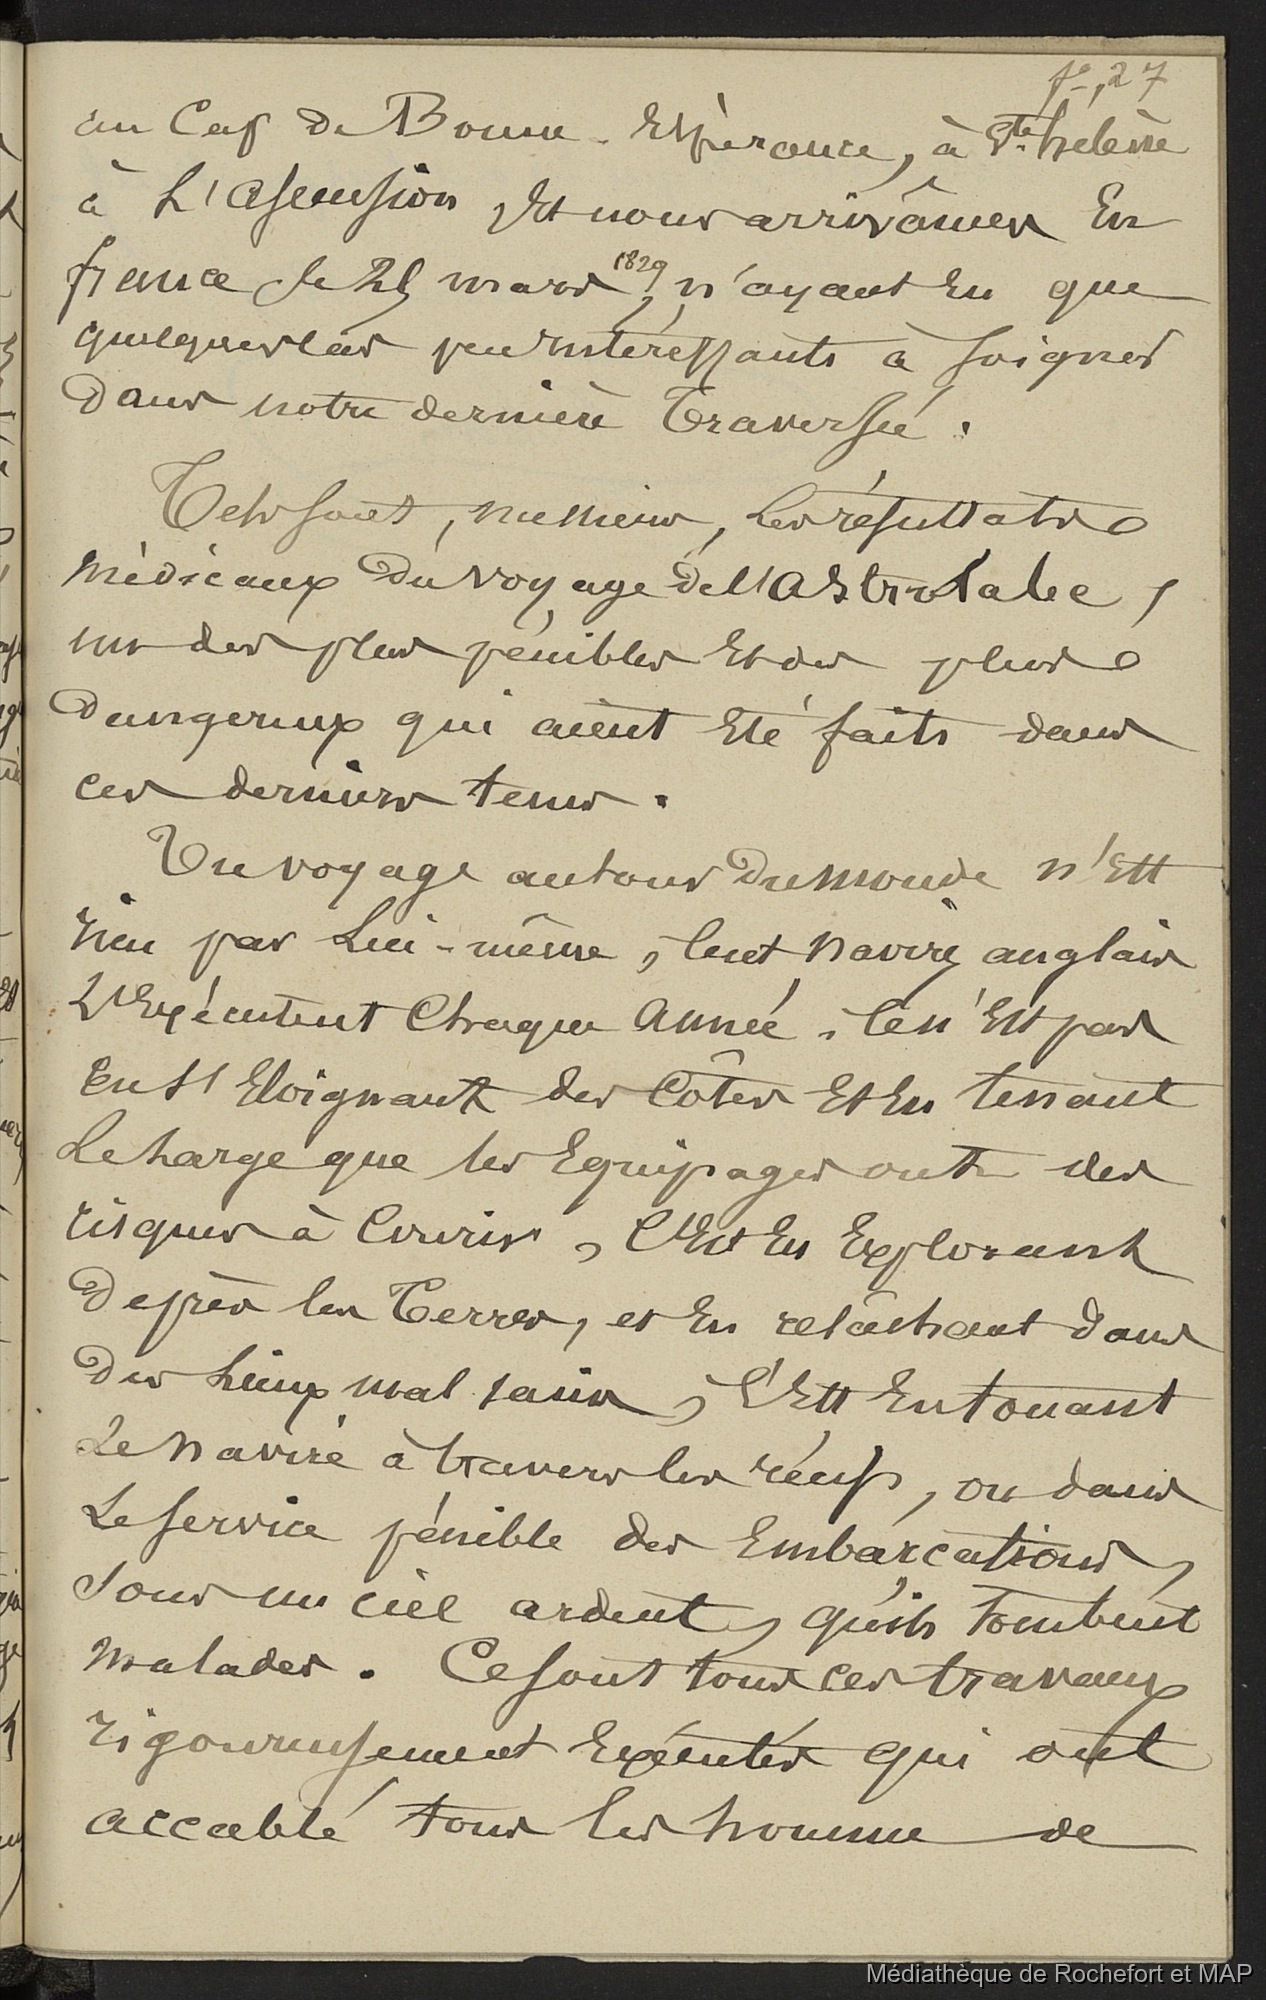 fo, 27
au Cap de Bonne-Espèrance, à Ste hélène
à L'Ascension, Et nous arrivâmes En
france le 25 mars 1829, n'ayant Eu que
quelques cas peu intéressants à soigner
Dans notre dernière Traversée.
Tels sont, messieurs, les résultats
médicaux Du voyage De l'Astrolabe,
un des plus pénibles Et des plus
Dangereux qui aient Eté faits dans
ces derniers tems.
Un voyage autour Du monde n'Est
rien par Lui-même, cent navires anglais
L'Exécutent Chaque année, ce n'Est pas
En s'Eloignant des Côtes Et En tenant
Le large que les Equipages ont des
risques à Courir, C'Est En Explorant
De près les Terres, et En relâchant dans
Des Lieux mal sains, C'Est En touant
Le navire à travers les récifs, ou dans
Le service pénible des Embarcations,
sous un ciel ardent, qu'ils tombent
malades. Ce sont tous ces travaux
rigoureusement Exécutés qui ont
accablé tous les homme de
Médiathèque de Rochefort et MAP